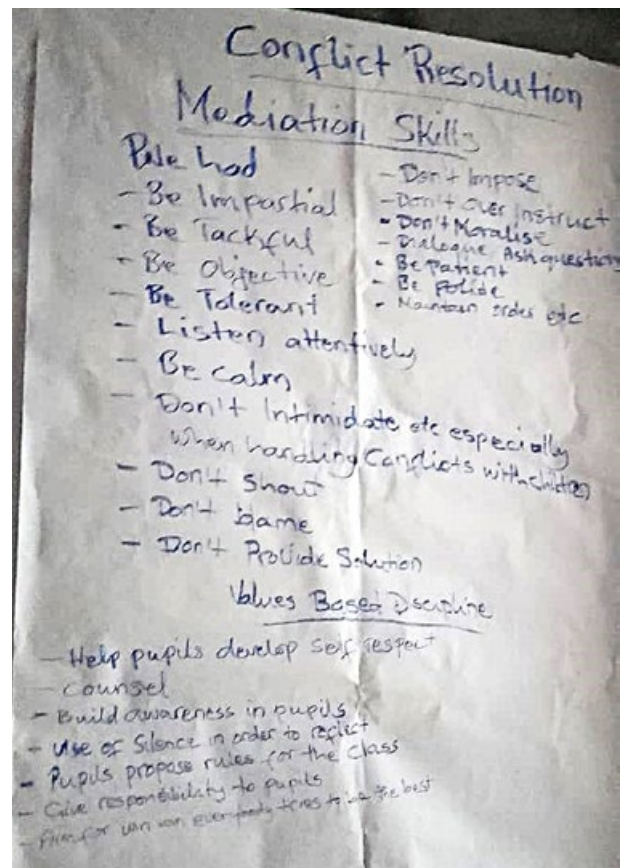 Conflict Resolution
Mediation Skills
- Be Impartial
- Be Tackful
- Be Objective
- Be Tolerant
- Listen attentively
- Be calm
- Don't Intimidate etc especially
when handling Conflicts with children
- Don't Shout
- Don't blame
- Don't Provide Solution
- Don't Impose
- Don't Over Instruct
- Don't Moralise
- Dialogue, Ask questions
- Be Patient
- Be Polide
- Maintain order etc
Values Based Discipline
- Help pupils develop self respect
- Counsel
- Build awareness in pupils
- Use of Silence in order to reflect
- Pupils propose rules for the Class
- Give responsibility to pupils
- for win win everybody tries to be the best